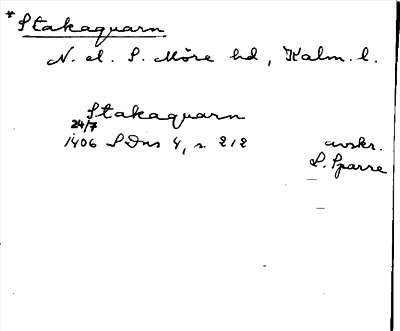 * Stakaquarn
N. el. S. Möre hd, Kalm. l.
Stakaquarn
24/7
1406 SDns 4, s. 212 avskr.
S. Sparre